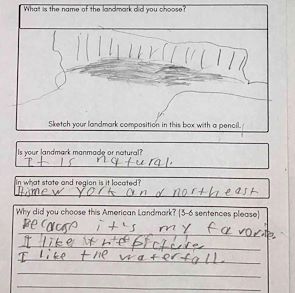 What is the name of the landmark did you choose?
Sketch your landmark composition in this box with a pencil.
Is your landmark manmade or natural?
It is natural.
In what state and region is it located?
new York and northeast
Why did you choose this American Landmark? (3-6 sentences please)
Because it's my favorite.
I like the pictures
I like the waterfall.